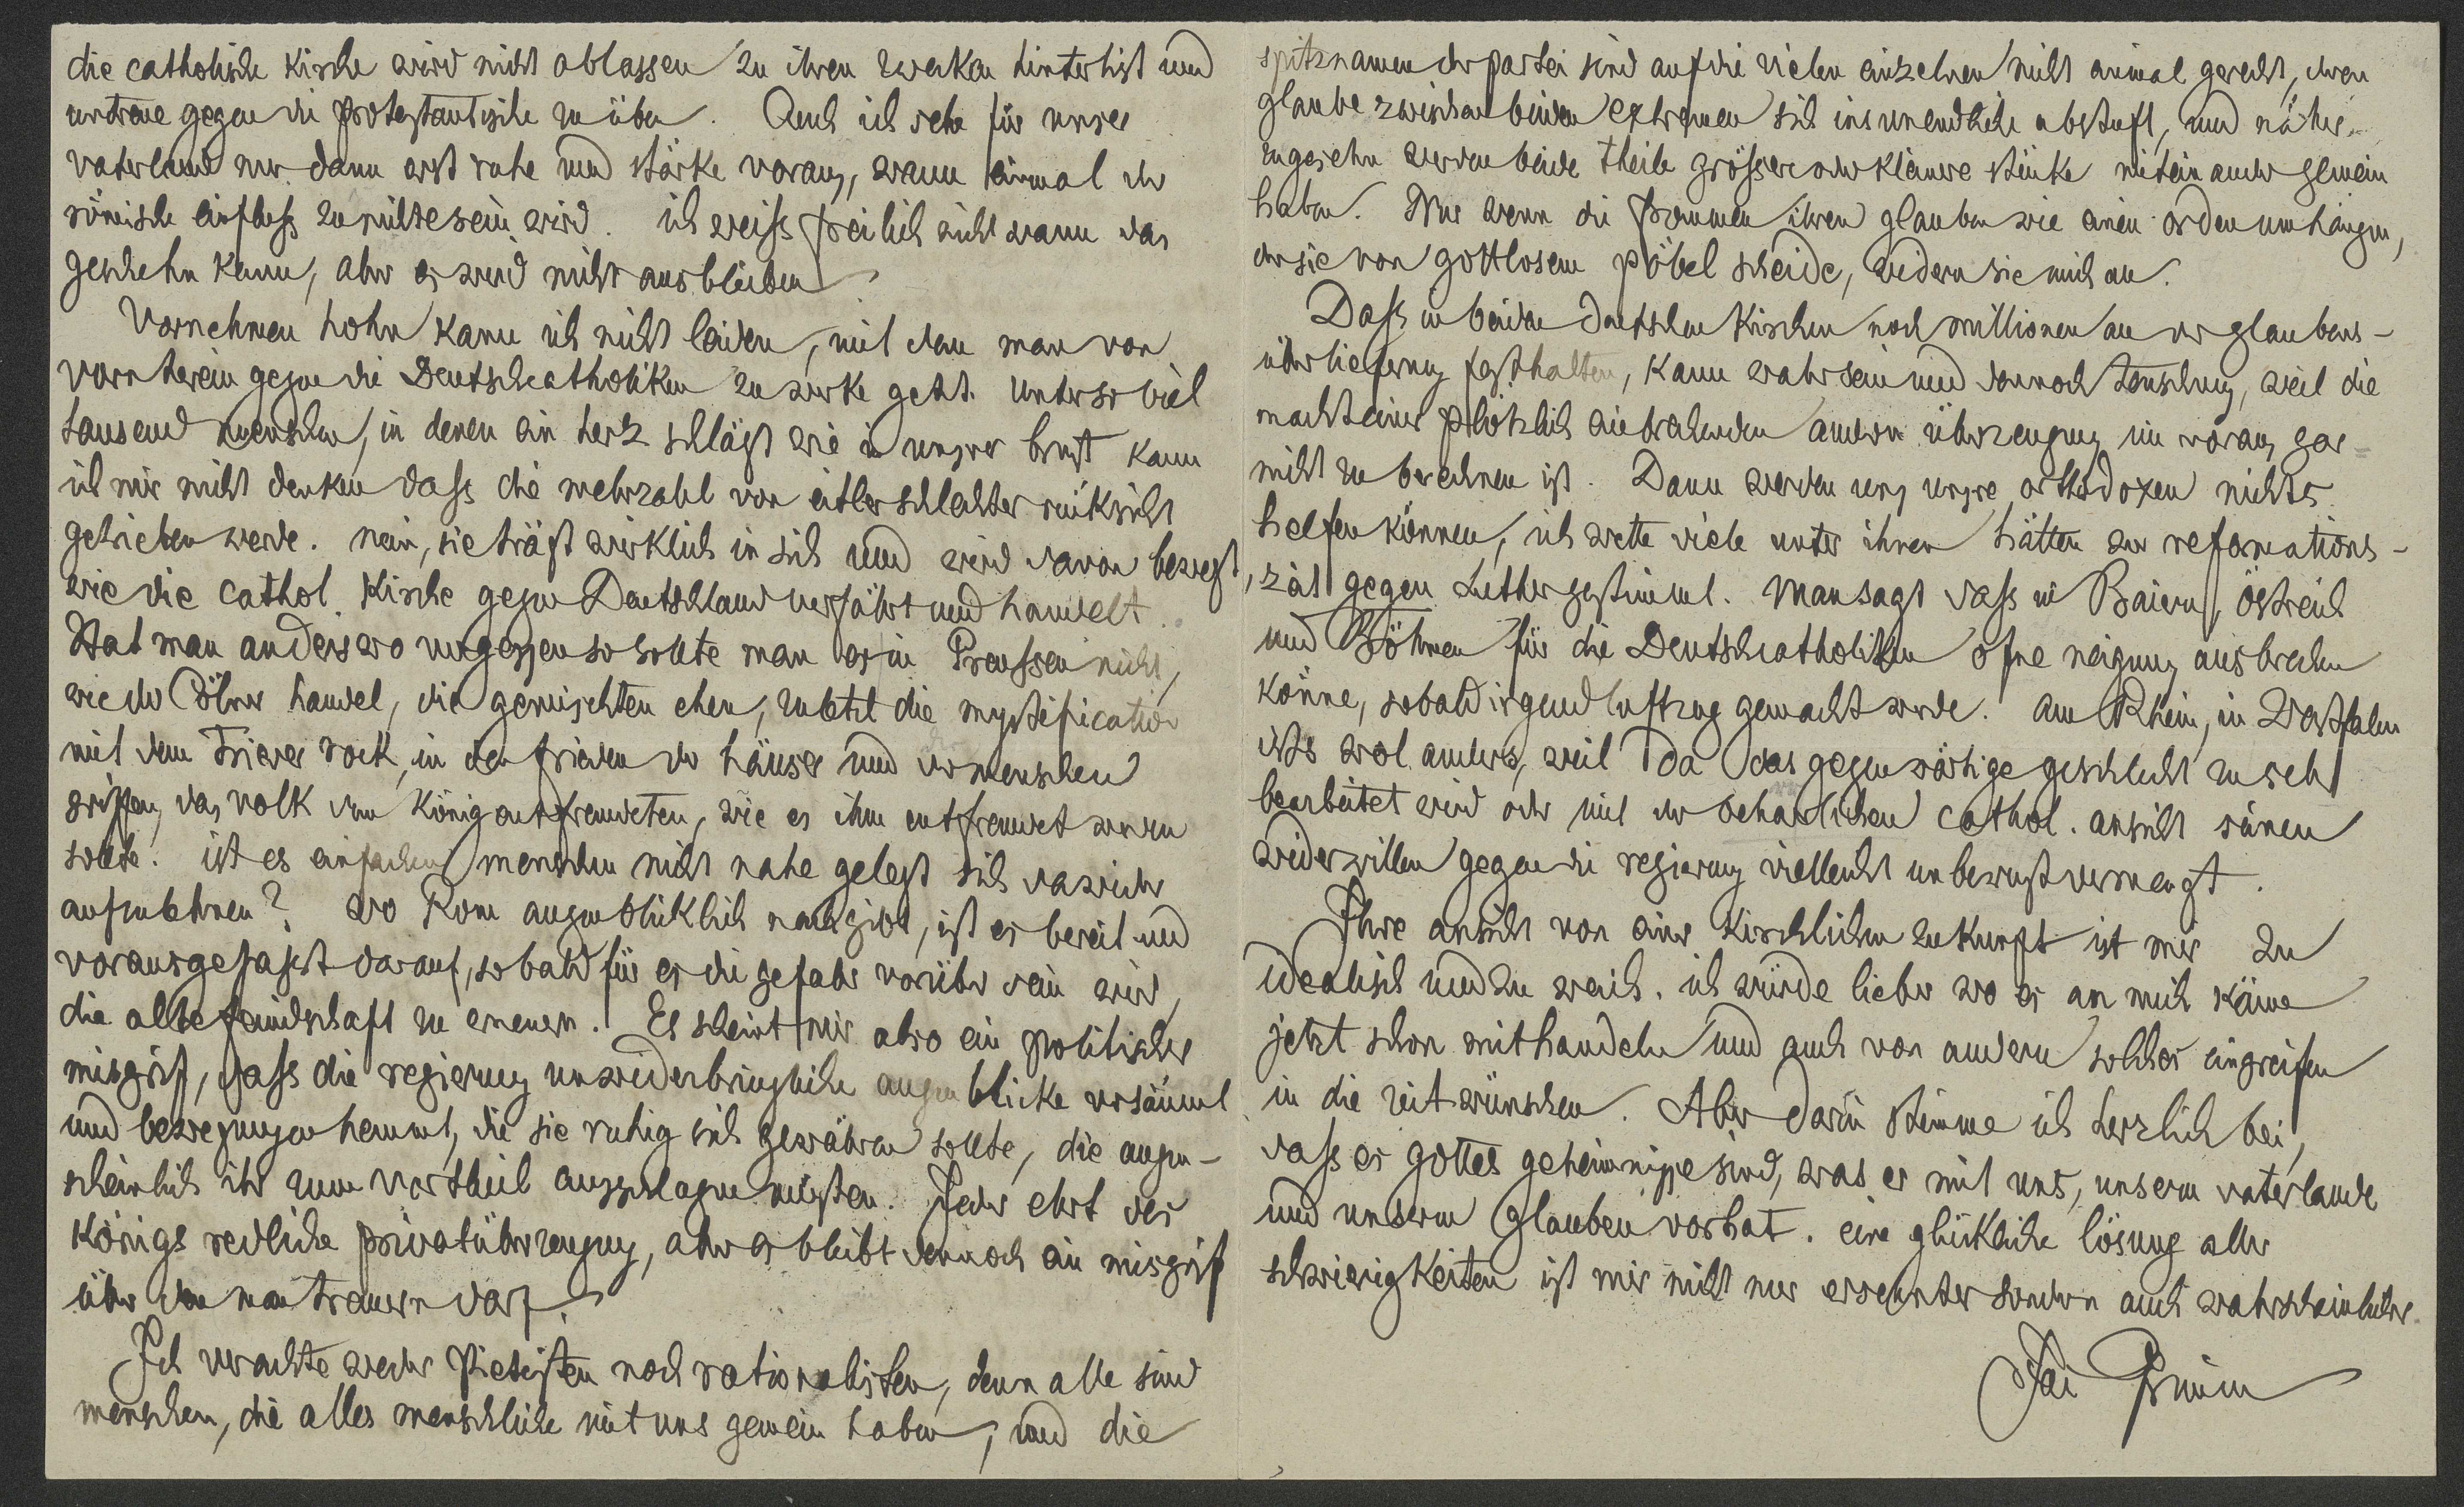 die catholische kirche wird nicht ablassen zu ihren zwecken hinterlist und
untreue gegen die protestantische zu üben. Auch ich sehe für unser
vaterland nur dann erst ruhe und stärke voraus, wann einmal der
römische einfluss zu nichte sein wird. ich weiss freilich nicht wann das
geschehn kann, aber es wird nicht ausbleiben.
Vornehmen hohn kann ich nicht leiden, mit dem man von
vorn herein gegen die Deutschcatholiken zu werke geht. Unter so viel
tausend menschen, in denen ein herz schlägt wie in unsrer brust kann
ich mir nicht denken dass die mehrzahl von eitler schlechter rücksicht
getrieben werde. nein, sie trägt wirklich in sich und wird davon bewegt,
wie die cathol. kirche gegen Deutschland verfährt und handelt.
Hat man anderswo vergessen so sollte man es in Preussen nicht,
wie der Cölner handel, die gemischten ehen, zuletzt die mystification
mit dem Trierer rock, in den frieden der häuser und der menschen
griffen, das volk dem könig entfremdeten, wie es ihm entfremdet werden
sollte. ist es einfachen menschen nicht nahe gelegt sich dawider
aufzulehnen? wo Rom augenblicklich nachgibt, ist es bereit und
vorausgefasst darauf, sobald für es die gefahr vorüber sein wird,
die alte feindschaft zu erneuern. Es scheint mir also ein politischer
misgrif, dass die regierung unwiderbringliche augenblicke versäumt
und bewegungen hemmt, die sie ruhig sich gewähren sollte, die augen-
scheinlich ihr zum vortheil ausschlagen müsten. Jeder ehrt des
königs redliche privatüberzeugung, aber es bleibt dennoch ein misgrif
über den man trauern darf.
Ich verachte weder Pietisten noch rationalisten, denn alle sind
menschen, die alles menschliche mit uns gemein haben, und die
spitznamen der partei sind auf die vielen einzelnen nicht einmal gerecht, deren
glaube zwischen beiden extremen sich ins unendliche abstuft, und näher
zugesehn werden beide theile grössere oder kleinere stücke miteinander gemein
haben. Nur wenn die frommen ihren glauben wie einen orden umhängen,
der sie von gottlosem pöbel scheide, widern sie mich an.
Dass in beiden deutschen kirchen noch millionen an der glaubens-
überlieferung festhalten, kann wahr sein und dennoch teuschung, weil die
macht einer plötzlich einbrechenden andern überzeugung im voraus gar
nicht zu berechnen ist. Dann werden uns unsre orthodoxen nichts
helfen können, ich wette viele unter ihnen hätten zur reformations-
zeit gegen Luther gestimmt. Man sagt dass in Baiern, Östreich
und Böhmen für die Deutschcatholiken ofne neigung ausbrechen
könne, sobald irgend luftzug gemacht werde. am Rhein, in Westfalen
ists wol anders, weil da das gegenwärtige geschlecht zu sehr
bearbeitet wird oder mit der beharlichen cathol. ansicht seinen
widerwillen gegen die regierung vielleicht unbewust vermengt.
Ihre ansicht von einer kirchlichen zukunft ist mir zu
idealisch und zu weich. ich würde lieber wo es an mich käme
jetzt schon mithandeln und auch von andern solches eingreifen
in die zeit wünschen. Aber darin stimme ich herzlich bei,
dass es gottes geheimnisse sind, was er mit uns, unserm vaterlande
und unserm glauben vorhat. eine glückliche lösung aller
schwierigkeiten ist mir nicht nur ersehnter sondern auch wahrscheinlicher.
Jac Grimm